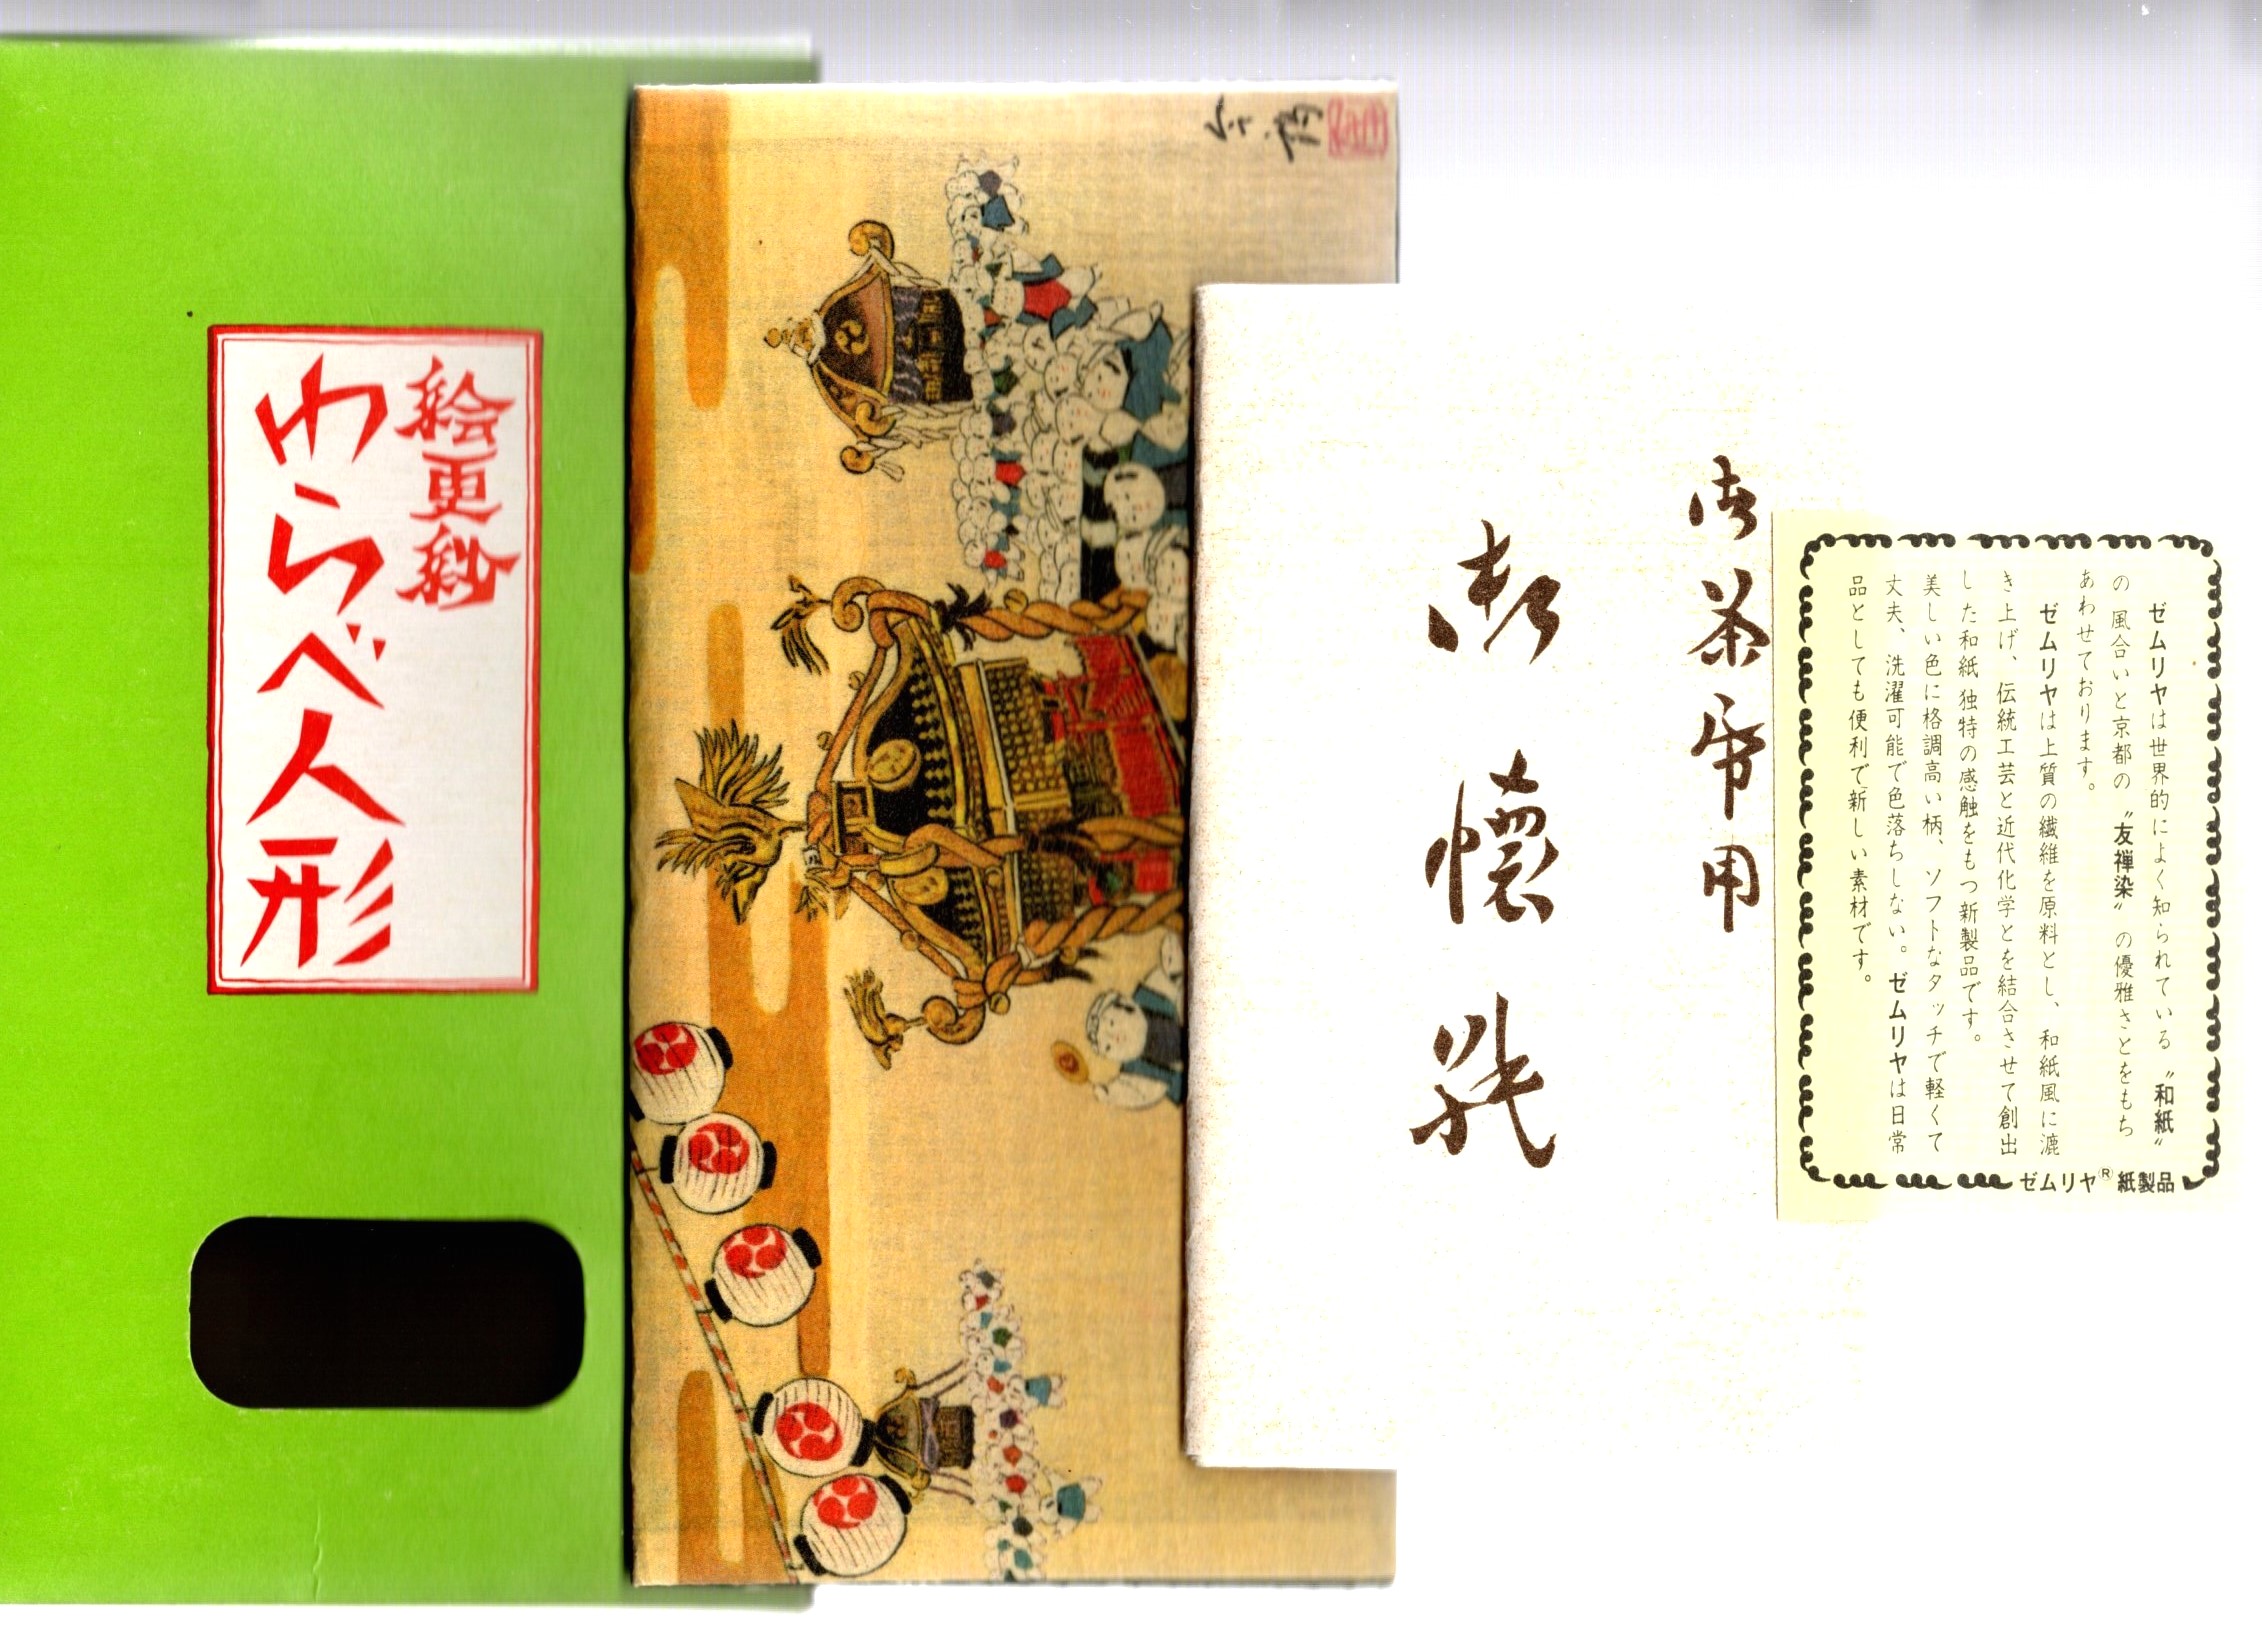 絵更紗
わらべ人形
御茶席用
御懐紙
ゼムリヤは世界的によく知られている〝和紙〟
の風合いと京都の〝友禅染〟の優雅さとをもち
あわせております。
ゼムリヤは上質の繊維を原料とし、和紙風に漉
き上げ、伝統工芸と近代化学とを結合させて創出
した和紙独特の感触をもつ新製品です。
美しい色に格調高い柄、ソフトなタッチで軽くて
丈夫、洗濯可能で色落ちしない。ゼムリヤは日常
品としても便利で新しい素材です。
ゼムリヤ®紙製品